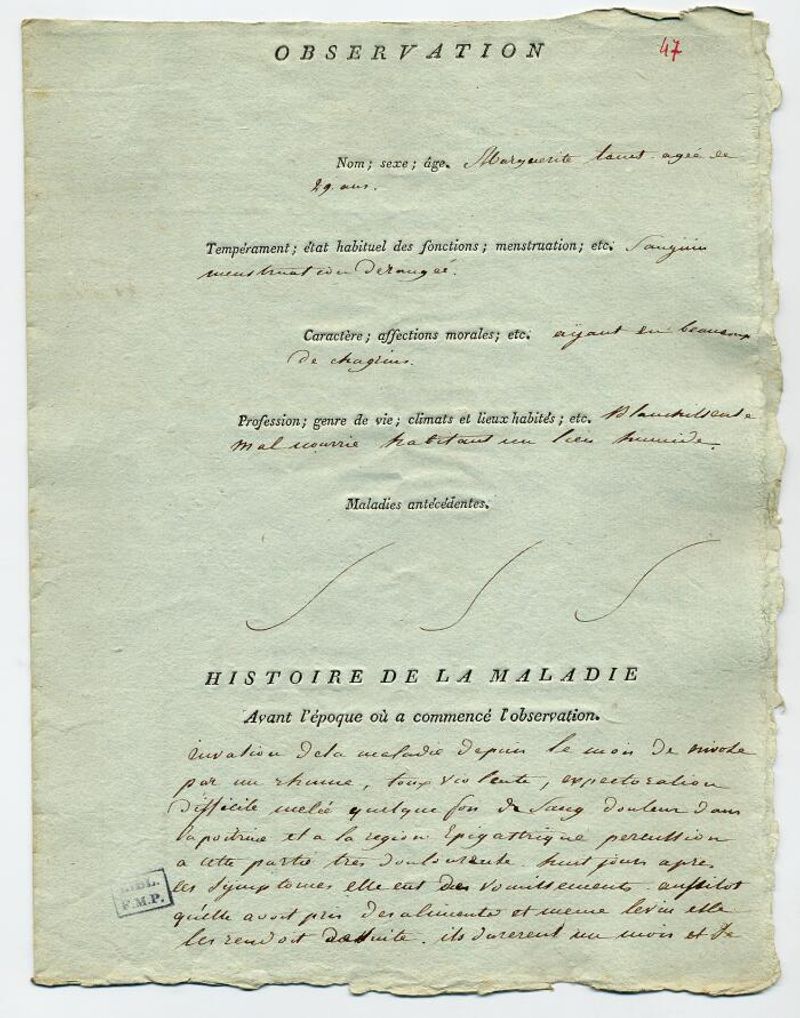 OBSERVATION
47
Nom; sexe; âge. Marguerite agée de
29. ans.
Tempérament; état habituel des fonctions; menstruation; etc. Sanguin
menstruation derangée.
Caractère; affections morales; etc. aÿant eu beaucoup
de chagrins.
Profession; genre de vie; climats et lieux habités; etc. Blanchisseuse
mal nourrie habitant un lieu humide.
Maladies antécédentes.
HISTOIRE DE LA MALADIE
Avant l'époque où a commencé l'observation.
invation de la maladie depuis le mois de nivose
par un rhume, toux violente, expectoration
difficile melée quelque fois de sang douleur dans
la poitrine et a la region Epigastrique percussion
a cette partie tres douloureuse. huit jours apres
les symptomes elle eut des vomissements aussitot
qu'elle avoit pris des aliments et meme le vin elle
les rendoit de suite. ils durerent un mois et de
BIBL.
F.M.P.